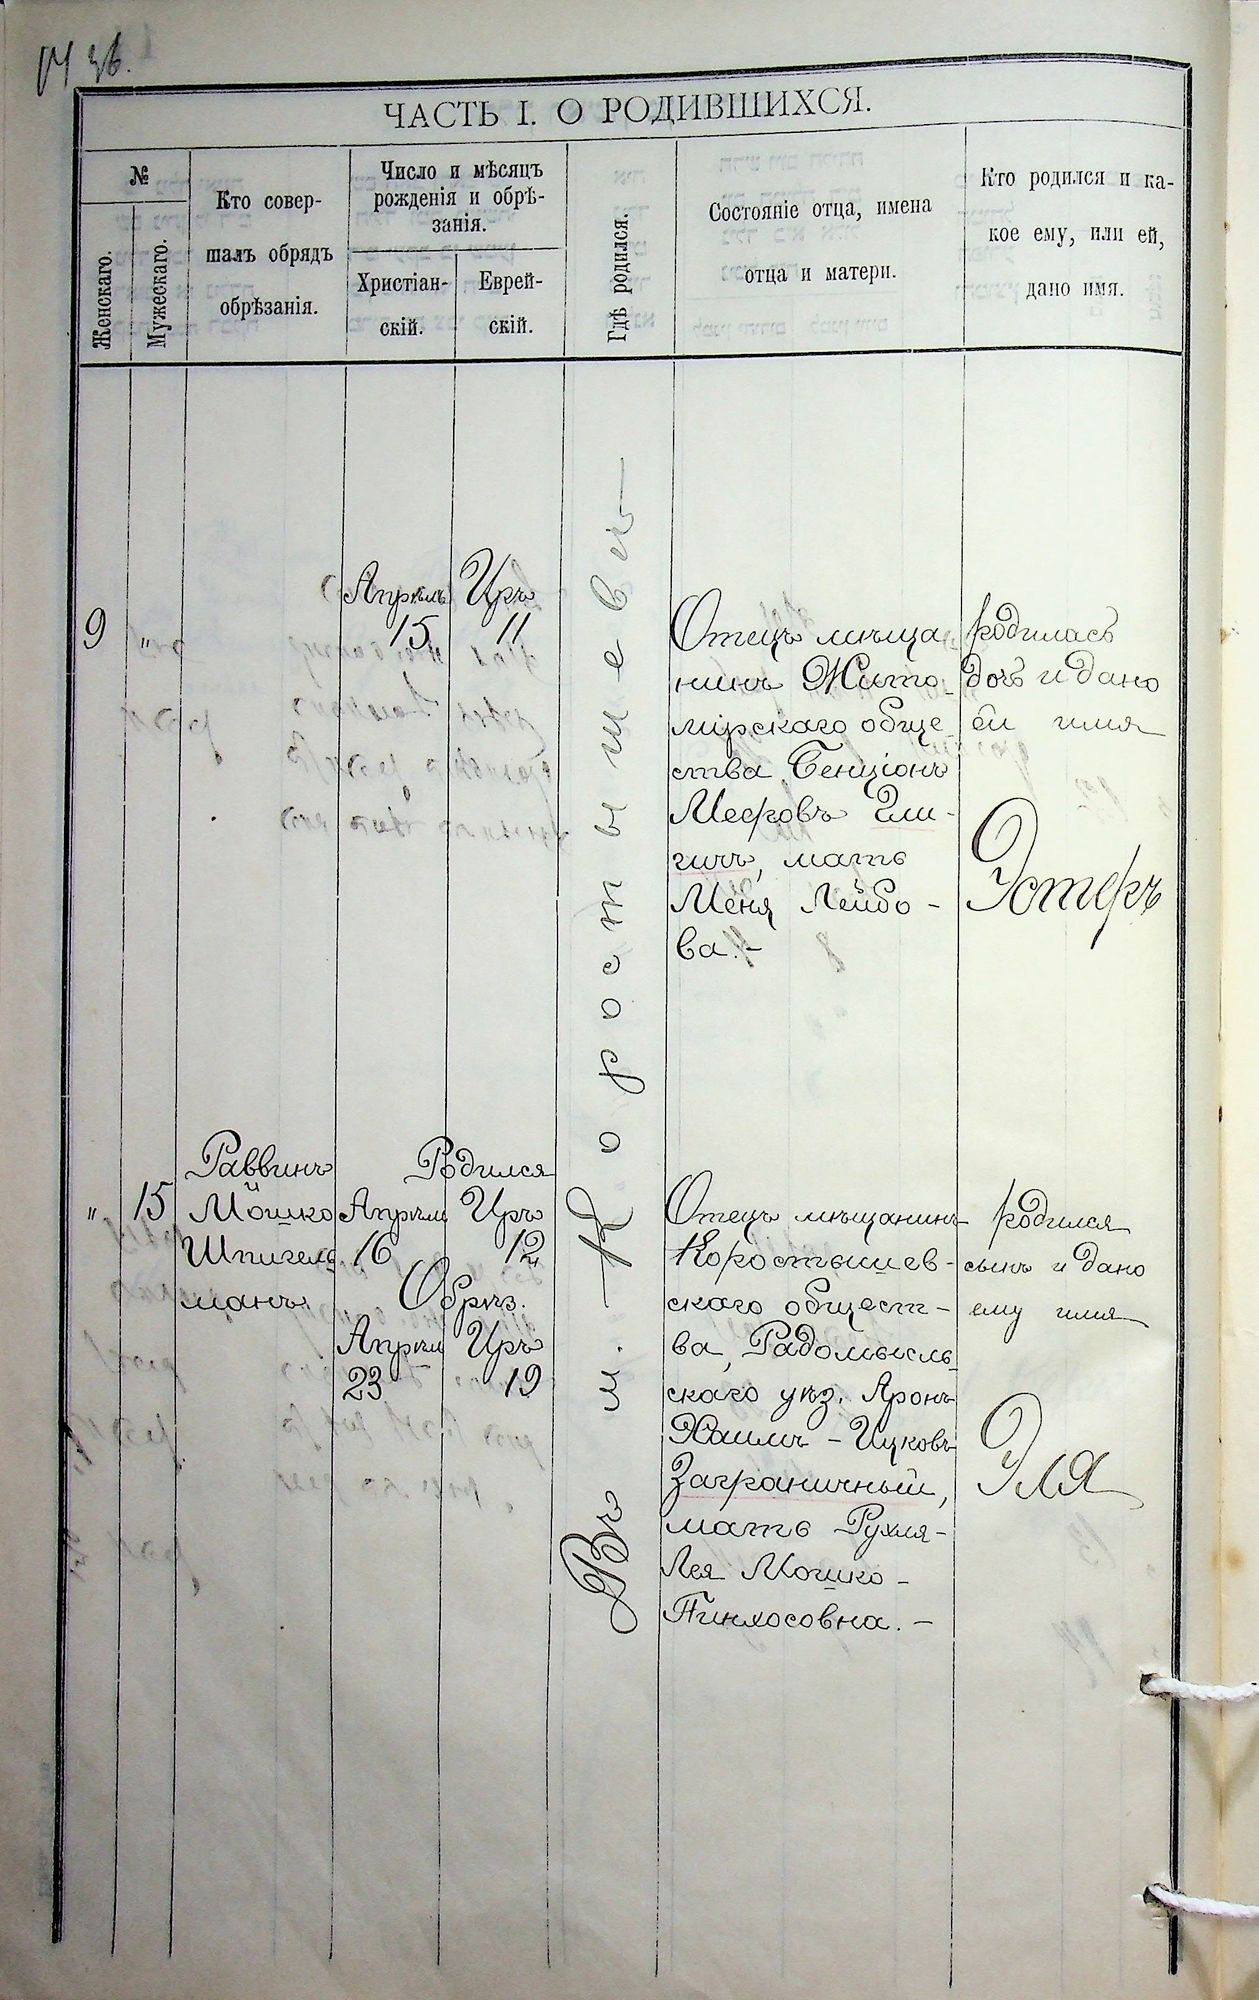 14 зв.
ЧАСТЬ I. О РОДИВШИХСЯ.
№
Женскаго.
Мужескаго.
Кто совер-
шалъ обрядъ
обрѣзанія.
Число и мѣсяцъ
рожденія и обрѣ-
занія.
Христіан-
скій.
Еврей-
скій.
Гдѣ родился.
Состояніе отца, имена
отца и матери.
Кто родился и ка-
кое ему, или ей,
дано имя.
9
"
Апрѣль
15
Иръ
11
Въ м. Коростышевѣ
Отецъ мѣща-
нинъ Жито-
мірскаго обще-
ства Бенціонъ
Меѳровъ Гли-
гичъ, мать
Меня Лейбо-
ва.-
родилась
дочь и дано
ей имя
Эстеръ
"
15
Раввинъ
Мошко
Шпигель
манъ.
Родился
Апрѣля
16
Иръ
12
Обрѣз.
Апрѣля
23
Иръ
19
Отецъ мѣщанинъ
Коростышев-
скаго общест-
ва, Радомысль
скаго уѣз. Аронъ
Хаимъ - Ицковъ
Заграничный,
мать Рухля-
Лея Мошко-
Пинхосовна.-
родился
сынъ и дано
ему имя
Эля